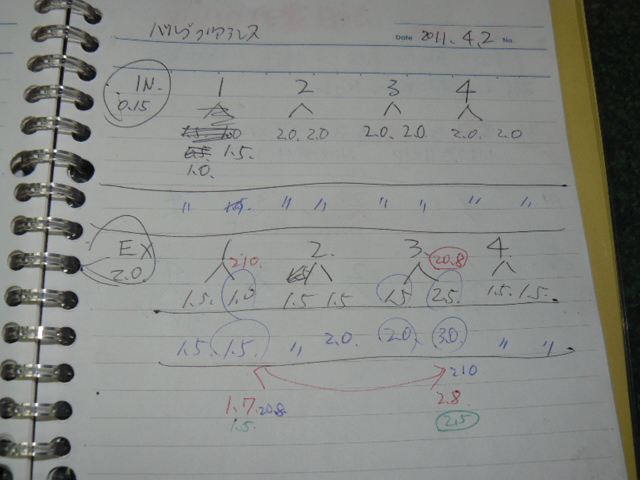 バルブクリアランス
Date 2011. 4. 2 No.
IN. 1 2 3 4
0.15
2.0 2.0 2.0 2.0 2.0 2.0
1.5.
1.0.
〃 〃 〃 〃 〃 〃 〃
EX 1 2. 3. 4.
2.0. 210. 20.8
1.5. 1.0. 1.5 1.5 1.5 2.5. 1.5. 1.5.
1.5. 1.5. 〃 2.0. 2.0. 3.0. 〃 〃
210
1.7 20.8 2.8
1.5. 2.5